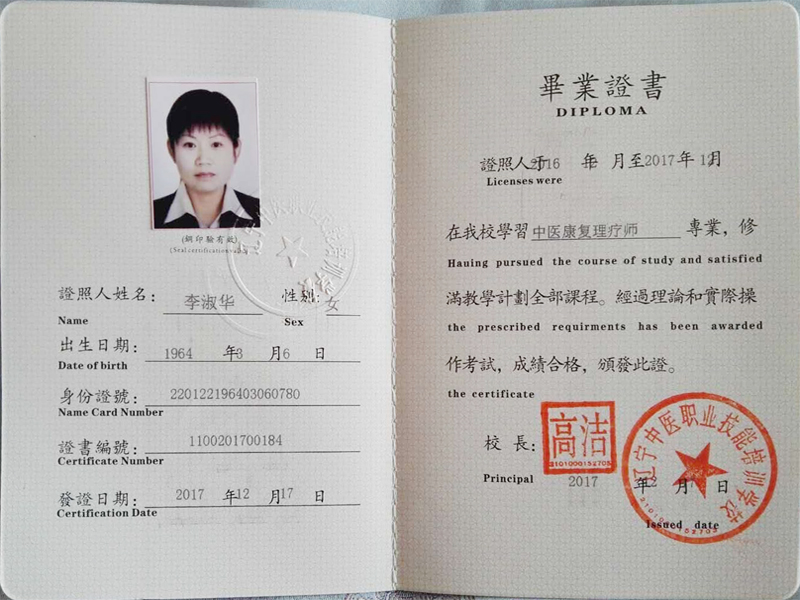 (鋼印驗有效)
(Seal certification valid)
證照人姓名：李淑华 性别：女
Name Sex
出生日期：1964 年3 月6 日
Date of birth
身份證號：220122196403060780
Name Card Number
證書編號：1100201700184
Certificate Number
發證日期：2017 年12 月17 日
Certification Date
畢業證書
DIPLOMA
證照人于2016 年 月至2017年12月
Licenses were
在我校學習中医康复理疗师 專業，修
Hauing pursued the course of study and satisfied
滿教學計劃全部課程。經過理論和實際操
the prescribed requirments has been awarded
作考試，成績合格，頒發此證。
the certificate
校長：高洁
2101000152705
Principal
辽宁中医职业技能培训学校
2017 年12月 日
Issued date